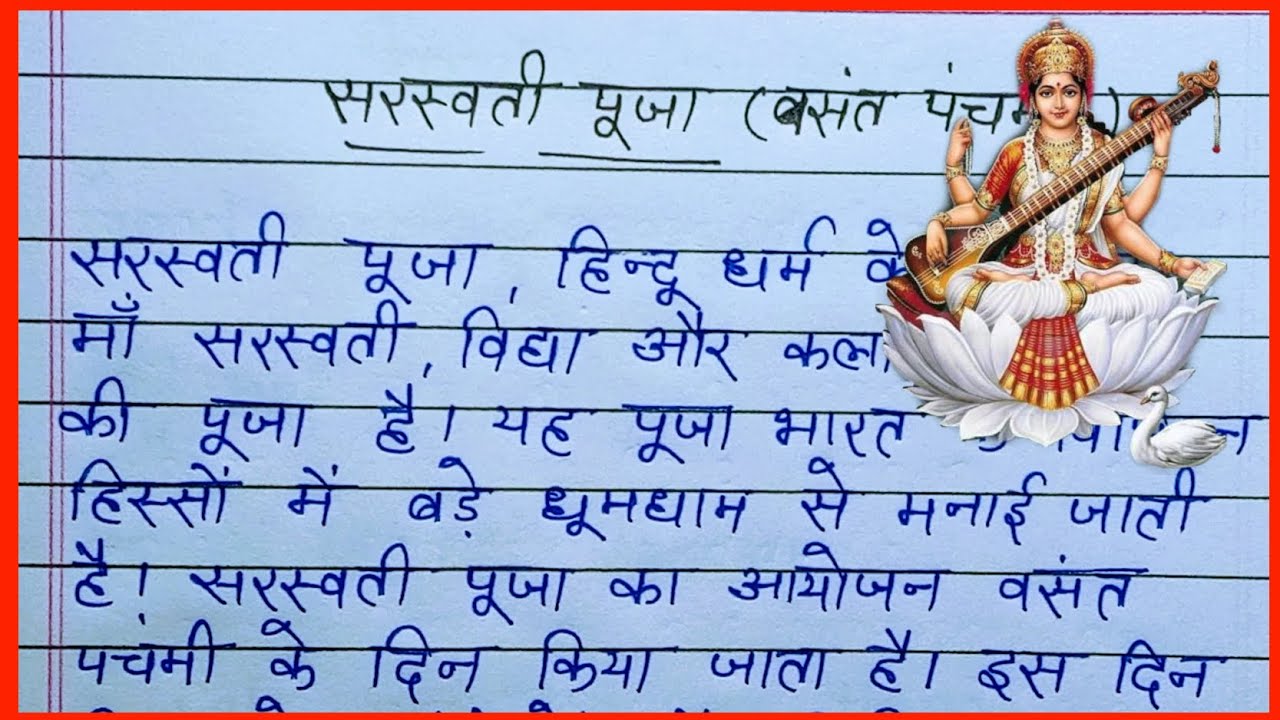 सरस्वती पूजा (वसंत
सरस्वती पूजा, हिन्दू धर्म के
माँ सरस्वती, विद्या और कला
की पूजा है। यह पूजा भारत
हिस्सों में बड़े धूमधाम से मनाई जाती
है। सरस्वती पूजा का आयोजन वसंत
पचंमी के दिन किया जाता है। इस दिन